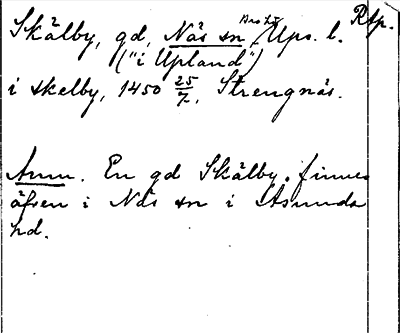 Skälby, gd, Näs sn, Bro hd Ups. l. Rtp.
("i Upland")
i skelby, 1450 25/7, Strengnäs.
Anm. En gd Skälby finnes
äfven i Näs sn i Åsunda
hd.